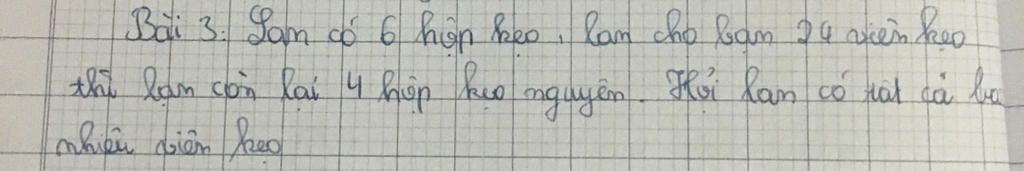 Bài 3: Lan có 6 hộp kẹo, Lan cho bạn 24 viên kẹo
thì Lan còn lại 4 hộp kẹo nguyên. Hỏi Lan có tất cả bao
nhiêu viên kẹo